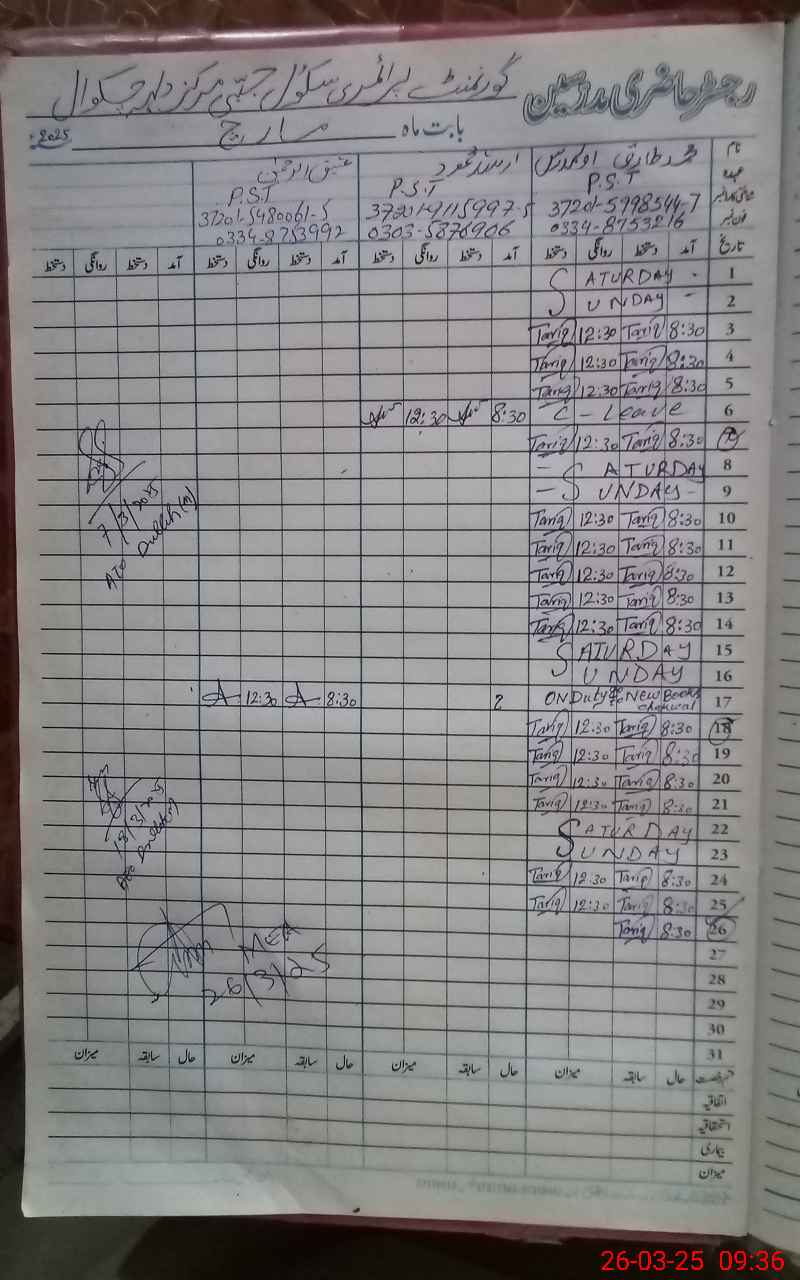 رجسٹر حاضری مدرسین گورنمنٹ پرائمری سکول جبی مرکز دلہہ چکوال
بابت ماہ مارچ 2025ء
نام محمد طارق ارسلان محمود عتیق الرحمٰن
عہدہ P.S.T P.S.T P.S.T
شناختی کارڈ نمبر 37201-5998544-7 37201-9115997-5 37201-5480061-5
فون نمبر 0334-8753216 0303-5876906 0334-8753992
تاریخ آمد دستخط روانگی دستخط آمد دستخط روانگی دستخط آمد دستخط روانگی دستخط آمد دستخط روانگی دستخط
1 SATURDAY -
2 SUNDAY -
3 8:30 Tariq 12:30 Tariq
4 8:30 Tariq 12:30 Tariq
5 8:30 Tariq 12:30 Tariq
6 C - Leave 8:30 12:30
7 8:30 Tariq 12:30 Tariq
8 - SATURDAY
9 - SUNDAY -
10 8:30 Tariq 12:30 Tariq
11 8:30 Tariq 12:30 Tariq
12 8:30 Tariq 12:30 Tariq
13 8:30 Tariq 12:30 Tariq
14 8:30 Tariq 12:30 Tariq
15 SATURDAY
16 SUNDAY
17 ON Duty New Books 8:30 A 12:30 A
18 8:30 Tariq 12:30 Tariq
19 8:30 Tariq 12:30 Tariq
20 8:30 Tariq 12:30 Tariq
21 8:30 Tariq 12:30 Tariq
22 SATURDAY
23 SUNDAY
24 8:30 Tariq 12:30 Tariq
25 8:30 Tariq 12:30 Tariq
26 8:30 Tariq
27
28
29
30
31
7/3/2025
AEO Dullah (M)
18/3/2025
AEO Dullah (M)
MEA
26/3/25
قسم رخصت حال سابقہ میزان حال سابقہ میزان حال سابقہ میزان حال سابقہ میزان
اتفاقیہ
استحقاقیہ
بیماری
میزان
26-03-25 09:36